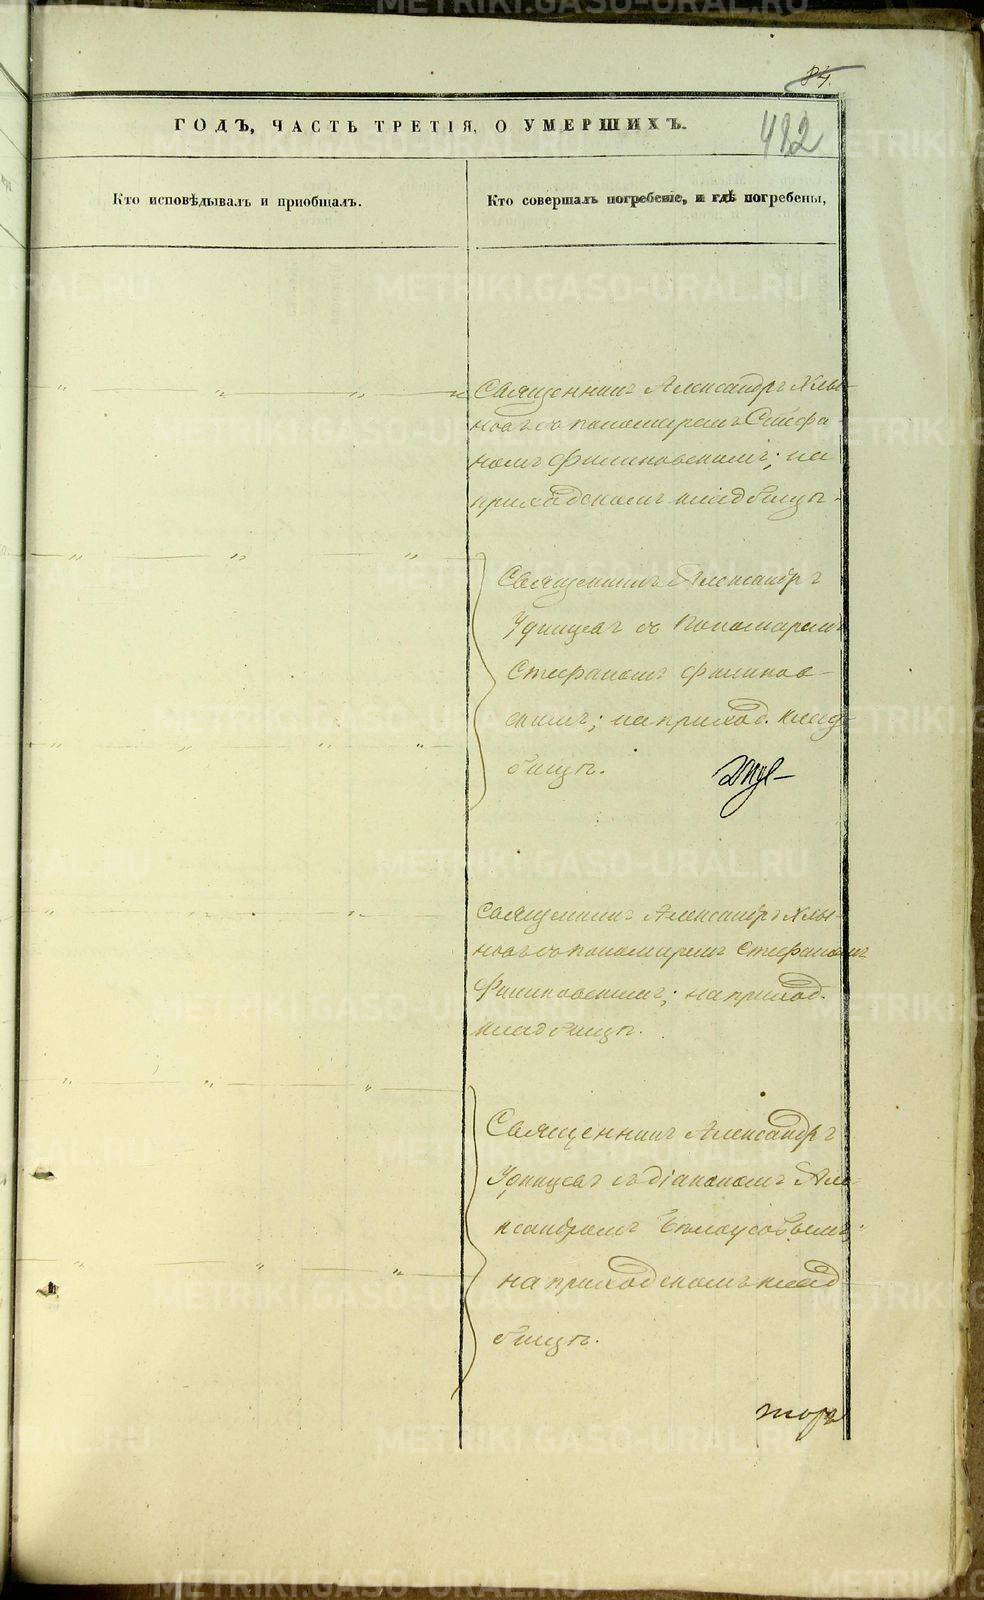 84.
482
ГОДЪ, ЧАСТЬ ТРЕТІЯ, О УМЕРШИХЪ.
Кто исповѣдывалъ и пріобщалъ.
Кто совершалъ погребеніе, и гдѣ погребены,
Священникъ Александръ Хлы-
новъ съ пономаремъ Стефа
номъ Филиповскимъ; на
приходскомъ кладбищѣ.
Священникъ Александръ
Удинцевъ съ Пономаремъ
Стефаномъ Филипов-
скимъ; на приход. клад-
бищѣ.
Священникъ Александръ Хлы-
новъ съ пономаремъ Стефаномъ
Филиповскимъ; на приход.
кладбищѣ.
Священникъ Александръ
Удинцевъ съ діакономъ Але-
ксандромъ Бѣлоусовымъ;
на приходскомъ клад
бищѣ.
METRIKI.GASO-URAL.RU